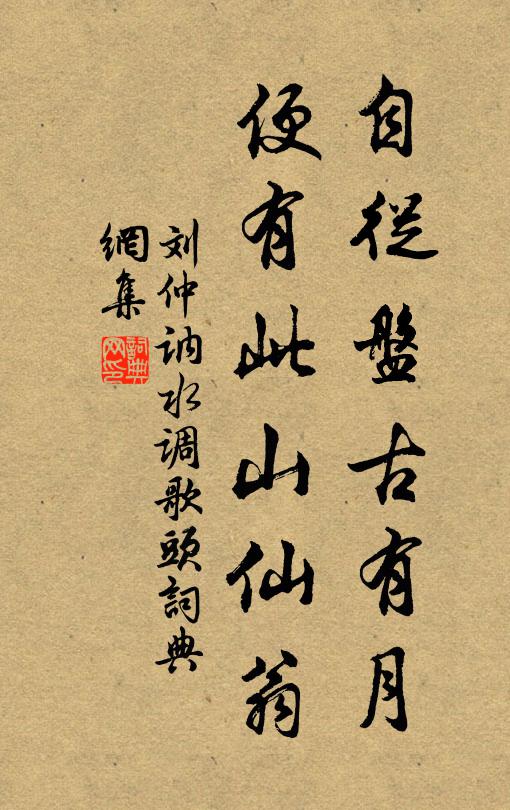 自從盤古有月
便有此山仙翁
刘仲讷水调歌頭詞典
網集
詞典网印